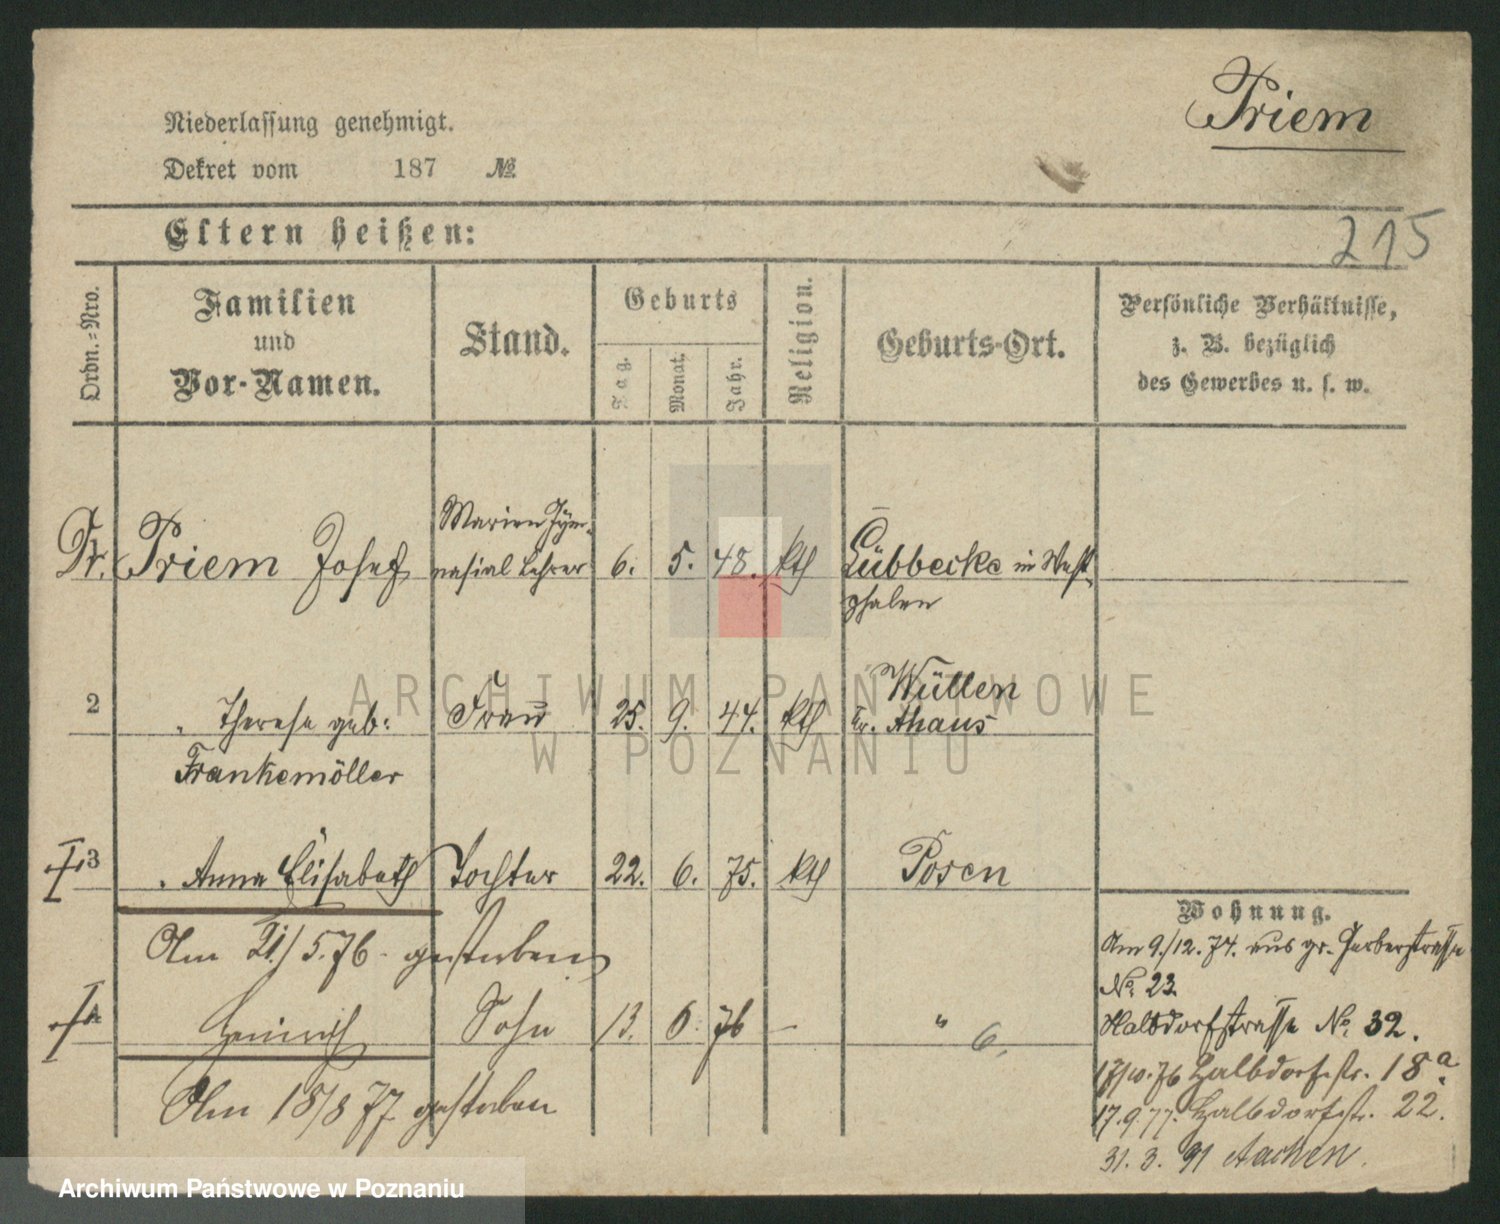 Priem
Niederlassung genehmigt.
Dekret vom 187 №
Eltern heißen:
215
Ordn.=Nro.
Familien
und
Vor-Namen.
Stand.
Geburts
Tag.
Monat.
Jahr.
Religion.
Geburts-Ort.
Persönliche Verhältnisse,
z. B. bezüglich
des Gewerbes u. s. w.
Marien Gym-
Dr. Priem Josef nasial Lehrer 6. 5. 48. kth Lübbecke in West-
phalen
Wüllen
2 " Therese geb: Frau 25. 9. 44. kth Kr. Ahaus
Frankemöller
3 " Anna Elisabeth Tochter 22. 6. 75. kth Posen
Am 21/5.76. gestorben
4 Heinrich Sohn 13. 6. 76 — " 6.
Am 18/8 77 gestorben
Wohnung.
Am 9./12. 74. aus gr. Gerberstrasse
No. 23
Halbdorfstrasse No. 32.
17/10.76 Halbdorfstr. 18a.
17.9.77. Halbdorfstr. 22.
31. 3. 91 Aachen.
ARCHIWUM PAŃSTWOWE
W POZNANIU
Archiwum Państwowe w Poznaniu